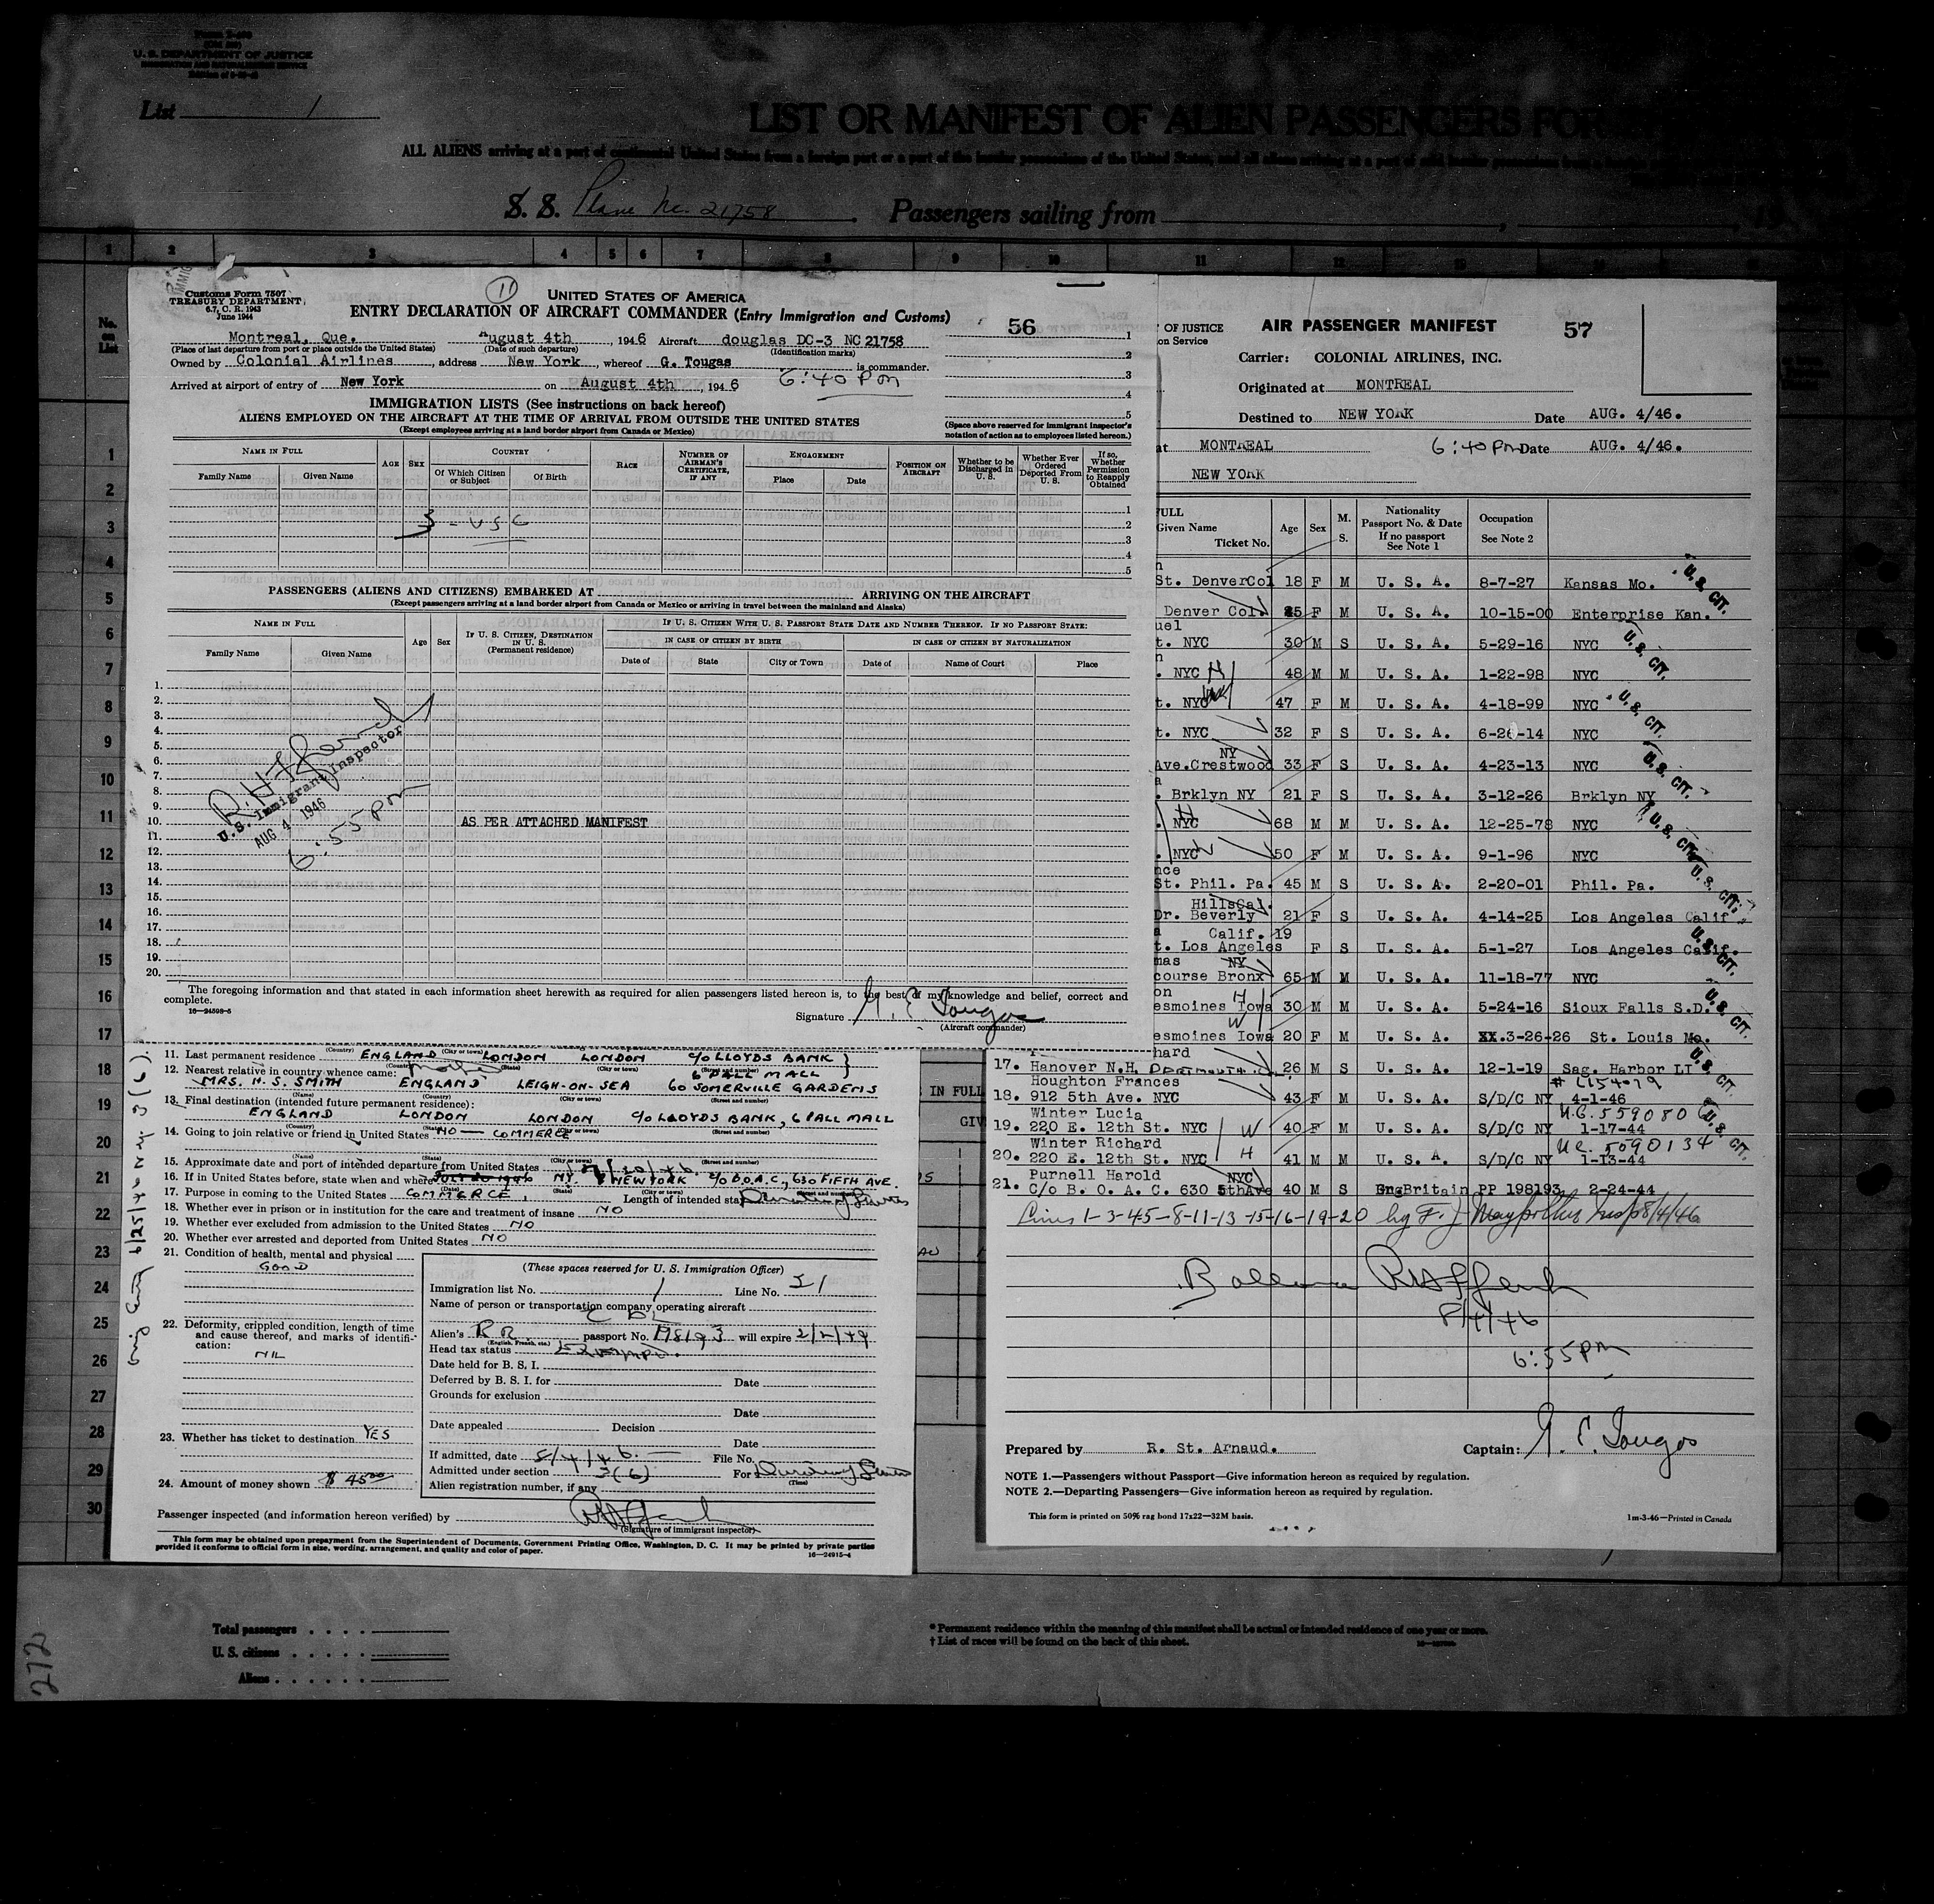 U. S. DEPARTMENT OF JUSTICE
IMMIGRATION AND NATURALIZATION SERVICE
List 1
LIST OR MANIFEST OF ALIEN PASSENGERS FOR
ALL ALIENS arriving at a port of continental United States from a foreign port or a port of the insular possessions of the United States, and all aliens arriving at a port of said insular possessions from a foreign
S. S. Plane No. 21758 . Passengers sailing from , , 19
1 2 3 4 5 6 7 8 9 10 11 12 13 14
No. on List
Customs Form 7507
TREASURY DEPARTMENT
6.7, C. R. 1943
June 1944
11
UNITED STATES OF AMERICA
ENTRY DECLARATION OF AIRCRAFT COMMANDER (Entry Immigration and Customs)
56
Montreal, Que. August 4th , 1946 Aircraft douglas DC-3 NC 21758
(Place of last departure from port or place outside the United States) (Date of such departure) (Identification marks)
Owned by Colonial Airlines , address New York , whereof G. Tougas is commander.
Arrived at airport of entry of New York on August 4th , 1946 6:40 PM
IMMIGRATION LISTS (See instructions on back hereof)
ALIENS EMPLOYED ON THE AIRCRAFT AT THE TIME OF ARRIVAL FROM OUTSIDE THE UNITED STATES
(Except employees arriving at a land border airport from Canada or Mexico)
1
2
3
4
5
(Space above reserved for immigrant inspector's notation of action as to employees listed hereon.)
NAME IN FULL
Family Name Given Name
AGE SEX
COUNTRY
Of Which Citizen or Subject Of Birth
RACE
NUMBER OF AIRMAN'S CERTIFICATE, IF ANY
ENGAGEMENT
Place Date
POSITION ON AIRCRAFT
Whether to be Discharged in U. S.
Whether Ever Ordered Deported From U. S.
If so, Whether Permission to Reapply Obtained
3 - USC
1
2
3
4
5
PASSENGERS (ALIENS AND CITIZENS) EMBARKED AT ARRIVING ON THE AIRCRAFT
(Except passengers arriving at a land border airport from Canada or Mexico or arriving in travel between the mainland and Alaska)
NAME IN FULL
Family Name Given Name
Age Sex
IF U. S. CITIZEN, DESTINATION IN U. S. (Permanent residence)
IF U. S. CITIZEN WITH U. S. PASSPORT STATE DATE AND NUMBER THEREOF. IF NO PASSPORT STATE:
IN CASE OF CITIZEN BY BIRTH IN CASE OF CITIZEN BY NATURALIZATION
Date of State City or Town Date of Name of Court Place
1.
2.
3.
4.
5.
6.
7.
8.
9.
10. AS PER ATTACHED MANIFEST
11.
12.
13.
14.
15.
16.
17.
18.
19.
20.
U.S. Immigrant Inspector
AUG 4 1946
6:55 PM
The foregoing information and that stated in each information sheet herewith as required for alien passengers listed hereon is, to the best of my knowledge and belief, correct and complete.
16—24598-5
Signature G. E. Tougas
(Aircraft commander)
OF JUSTICE
on Service
AIR PASSENGER MANIFEST 57
Carrier: COLONIAL AIRLINES, INC.
Originated at MONTREAL
Destined to NEW YORK Date AUG. 4/46.
at MONTREAL 6:40 PM Date AUG. 4/46.
NEW YORK
FULL
Given Name
Ticket No.
Age Sex M. S.
Nationality
Passport No. & Date
If no passport
See Note 1
Occupation
See Note 2
St. DenverCol 18 F M U. S. A. 8-7-27 Kansas Mo. U. S. CIT.
Denver Col. F M U. S. A. 10-15-00 Enterprise Kan.
uel
t. NYC 30 M S U. S. A. 5-29-16 NYC U. S. CIT.
. NYC H 48 M M U. S. A. 1-22-98 NYC
t. NYC 47 F M U. S. A. 4-18-99 NYC U. S. CIT.
t. NYC 32 F S U. S. A. 6-26-14 NYC
NY
Ave.Crestwood 33 F S U. S. A. 4-23-13 NYC U. S. CIT.
. Brklyn NY 21 F S U. S. A. 3-12-26 Brklyn NY
. NYC 68 M M U. S. A. 12-25-78 NYC U. S. CIT.
. NYC 50 F M U. S. A. 9-1-96 NYC
nce
St. Phil. Pa. 45 M S U. S. A. 2-20-01 Phil. Pa. U. S. CIT.
HillsCal.
Dr. Beverly 21 F S U. S. A. 4-14-25 Los Angeles Calif
Calif. 19
t. Los Angeles F S U. S. A. 5-1-27 Los Angeles Calif. U. S. CIT.
mas NY
course Bronx 65 M M U. S. A. 11-18-77 NYC
on
esmoines Iowa H 30 M M U. S. A. 5-24-16 Sioux Falls S.D. U. S. CIT.
esmoines Iowa W 20 F M U. S. A. XX.3-26-26 St. Louis Mo.
hard
17. Hanover N.H. DARTMOUTH 26 M S U. S. A. 12-1-19 Sag. Harbor LI U. S. CIT.
Houghton Frances # L154079
18. 912 5th Ave. NYC 43 F M U. S. A. S/D/C NY 4-1-46
Winter Lucia U.C. 559080
19. 220 E. 12th St. NYC W 40 F M U. S. A. S/D/C NY 1-17-44 U. S. CIT.
Winter Richard U.C. 5090134
20. 220 E. 12th St. NYC H 41 M M U. S. A. S/D/C NY 1-13-44
Purnell Harold NYC
21. C/o B. O. A. C. 630 5thAve 40 M S Britain PP 198193 2-24-44
Lines 1-3-45-8-11-13-15-16-19-20 by F. J. 8/4/46
8/4/46
6:55 PM
Prepared by R. St. Arnaud. Captain: G. E. Tougas
NOTE 1.—Passengers without Passport—Give information hereon as required by regulation.
NOTE 2.—Departing Passengers—Give information hereon as required by regulation.
This form is printed on 50% rag bond 17x22—32M basis. 1m-3-46—Printed in Canada
11. Last permanent residence ENGLAND LONDON LONDON c/o LLOYDS BANK
(Country) (City or town) (State) (Street and number)
6 PALL MALL
12. Nearest relative in country whence came: Mother
MRS. H. S. SMITH ENGLAND LEIGH-ON-SEA 60 SOMERVILLE GARDENS
(Name) (Country) (City or town) (Street and number)
13. Final destination (intended future permanent residence):
ENGLAND LONDON LONDON c/o LLOYDS BANK, 6 PALL MALL
(Country) (State) (City or town) (Street and number)
14. Going to join relative or friend in United States NO — COMMERCE
(Name) (State) (City or town) (Street and number)
15. Approximate date and port of intended departure from United States
16. If in United States before, state when and where JULY 20 1946 NY. NEW YORK c/o B.O.A.C., 630 FIFTH AVE.
(Date) (State) (City or town) (Street and number)
17. Purpose in coming to the United States COMMERCE, Length of intended stay Duration of Status
18. Whether ever in prison or in institution for the care and treatment of insane NO
19. Whether ever excluded from admission to the United States NO
20. Whether ever arrested and deported from United States NO
21. Condition of health, mental and physical
GOOD
22. Deformity, crippled condition, length of time and cause thereof, and marks of identification:
NIL
23. Whether has ticket to destination YES
24. Amount of money shown $ 45.00
(These spaces reserved for U. S. Immigration Officer)
Immigration list No. 1 Line No. 21
Name of person or transportation company operating aircraft
Alien's BR passport No. 198193 will expire 2/2/49
(English, French, etc.)
Head tax status Exempt.
Date held for B. S. I.
Deferred by B. S. I. for Date
Grounds for exclusion
Date
Date appealed Decision
Date
If admitted, date 8/4/46 File No.
Admitted under section 3(6) For During Status
(Time)
Alien registration number, if any
Passenger inspected (and information hereon verified) by
(Signature of immigrant inspector)
This form may be obtained upon prepayment from the Superintendent of Documents, Government Printing Office, Washington, D. C. It may be printed by private parties provided it conforms to official form in size, wording, arrangement, and quality and color of paper.
16—24915-4
IN FULL
GIV
1
2
3
4
5
6
7
8
9
10
11
12
13
14
15
16
17
18
19
20
21
22
23
24
25
26
27
28
29
30
Total passengers
U. S. citizens
Aliens
* Permanent residence within the meaning of this manifest shall be actual or intended residence of one year or more.
† List of races will be found on the back of this sheet.
272